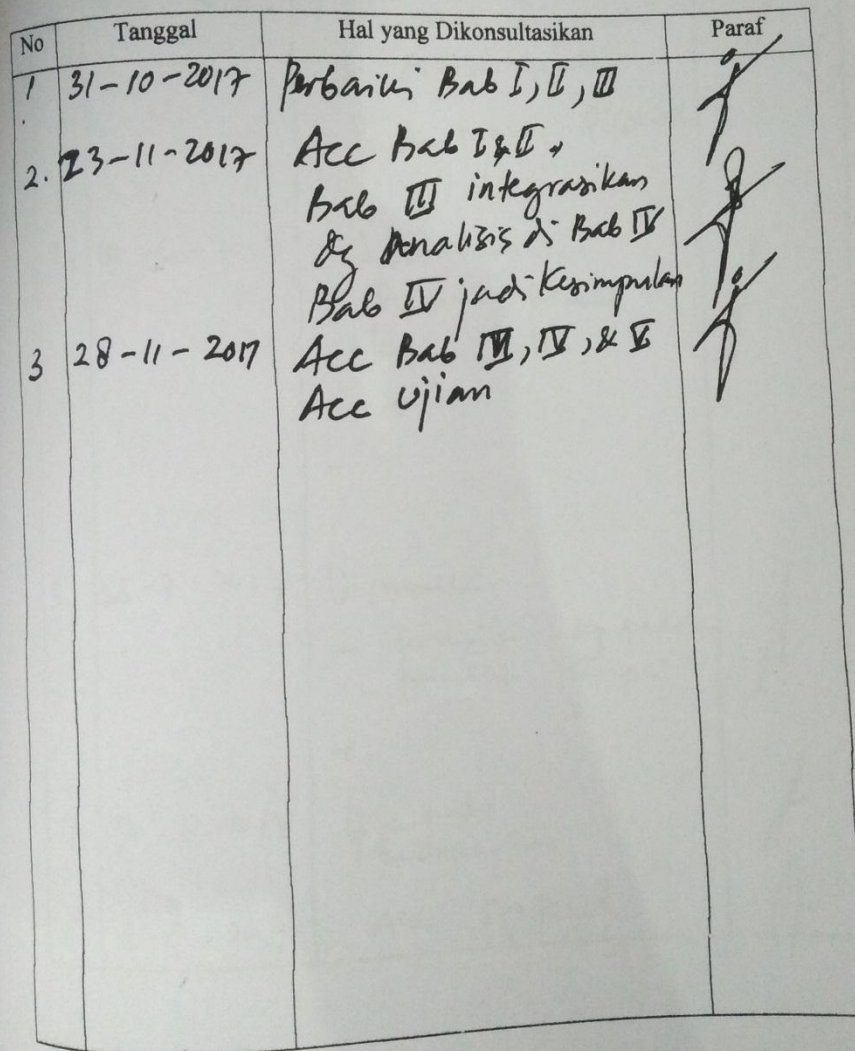 No Tanggal Hal yang Dikonsultasikan Paraf
1. 31-10-2017 Perbaiki Bab I, II, III
2. 23-11-2017 Acc Bab I & II,
Bab III integrasikan
dg Analisis di Bab IV
Bab IV jadi Kesimpulan
3 28-11-2017 Acc Bab III, IV, & V
Acc Ujian